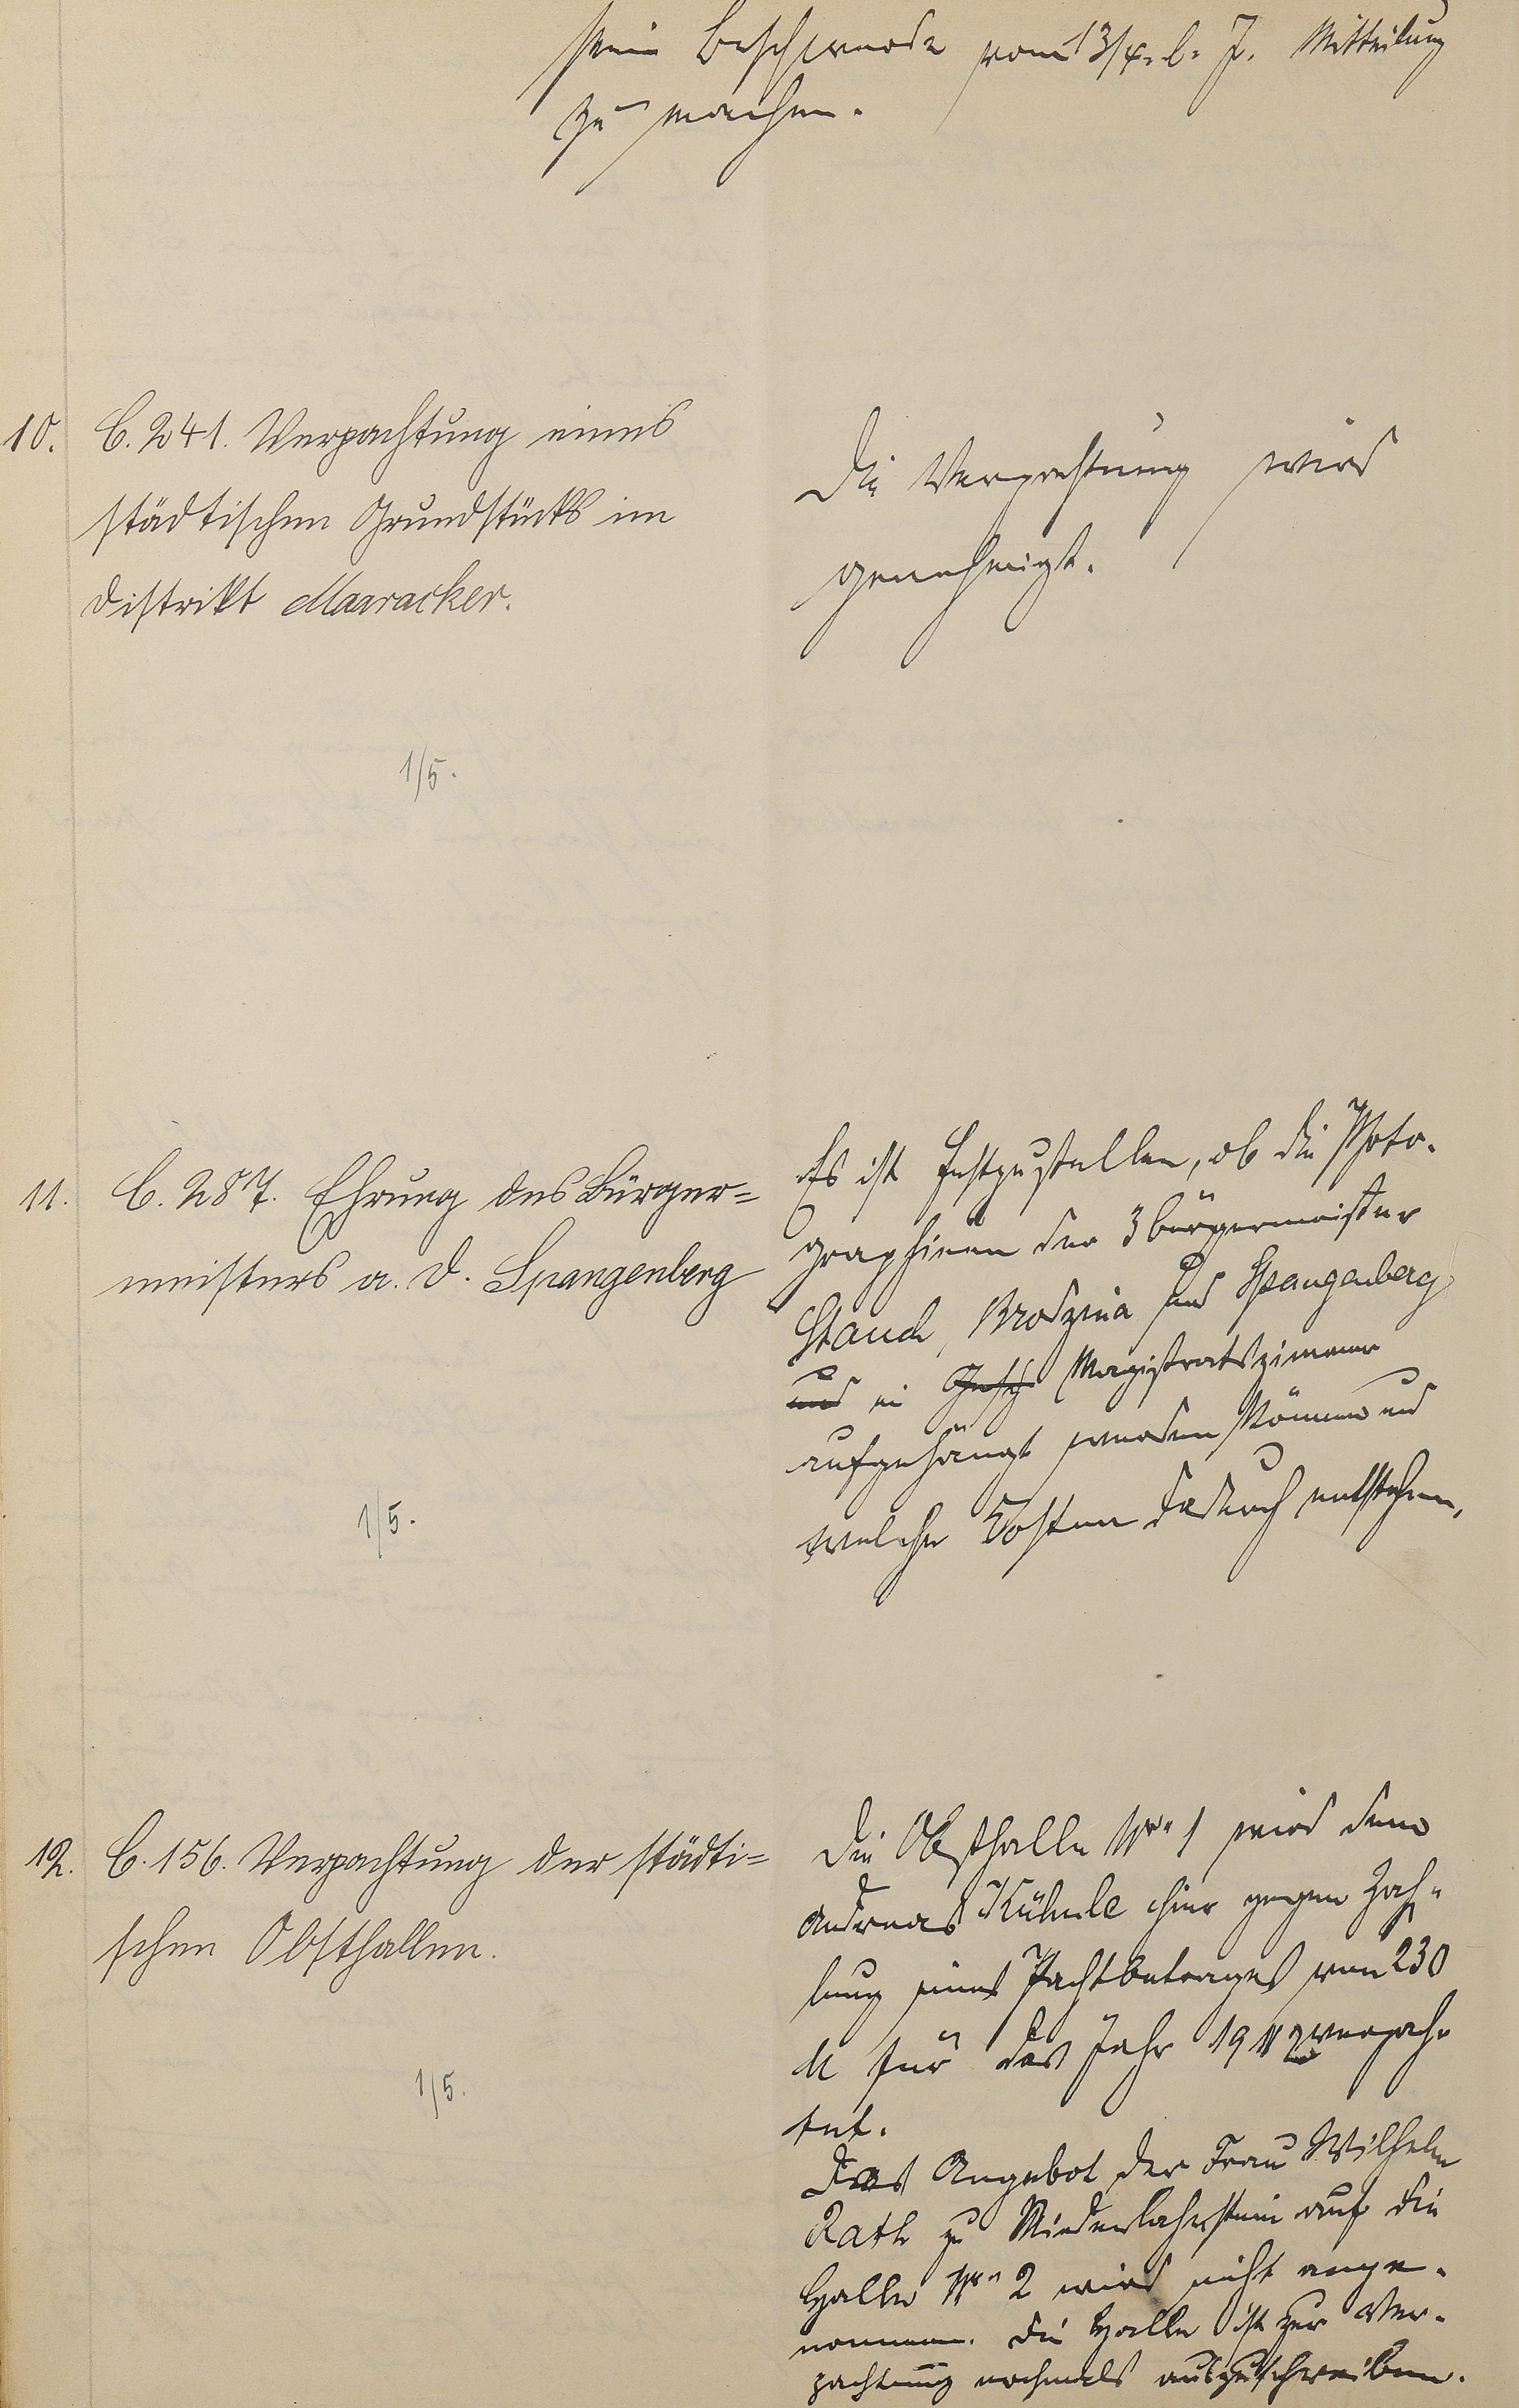 sein Beschwerde vom 13/4. l. J. Mitteilung
zu machen.
10. C. 241. Verpachtung eines
städtischen Grundstücks im
Distrikt Maaracker.
1/5.
Die Verpachtung wird
genehmigt.
11. C. 287. Ehrung des Bürger=
meisters a. D. Spangenberg
1/5.
Es ist festzustellen, ob die Photo-
graphieen der 3 Bürgermeister
Staud, Brodzina und Spangenberg
und in Magistratszimmer
aufgehängt werden können und
welche Kosten dadurch entstehen.
12. C. 156. Verpachtung der städti=
schen Obsthallen.
1/5.
Die Obsthalle Nr. 1 wird dem
Andreas Kühnle hier gegen Zah-
lung eines Pachtbetrages von 230
M für das Jahr 1912 verpach-
tet.
Das Angebot der Frau Wilhelm
Rath zu Niederlahnstein auf die
Halle Nr. 2 wird nicht ange-
nommen. Die Halle ist zur Ver-
pachtung nochmals auszuschreiben.